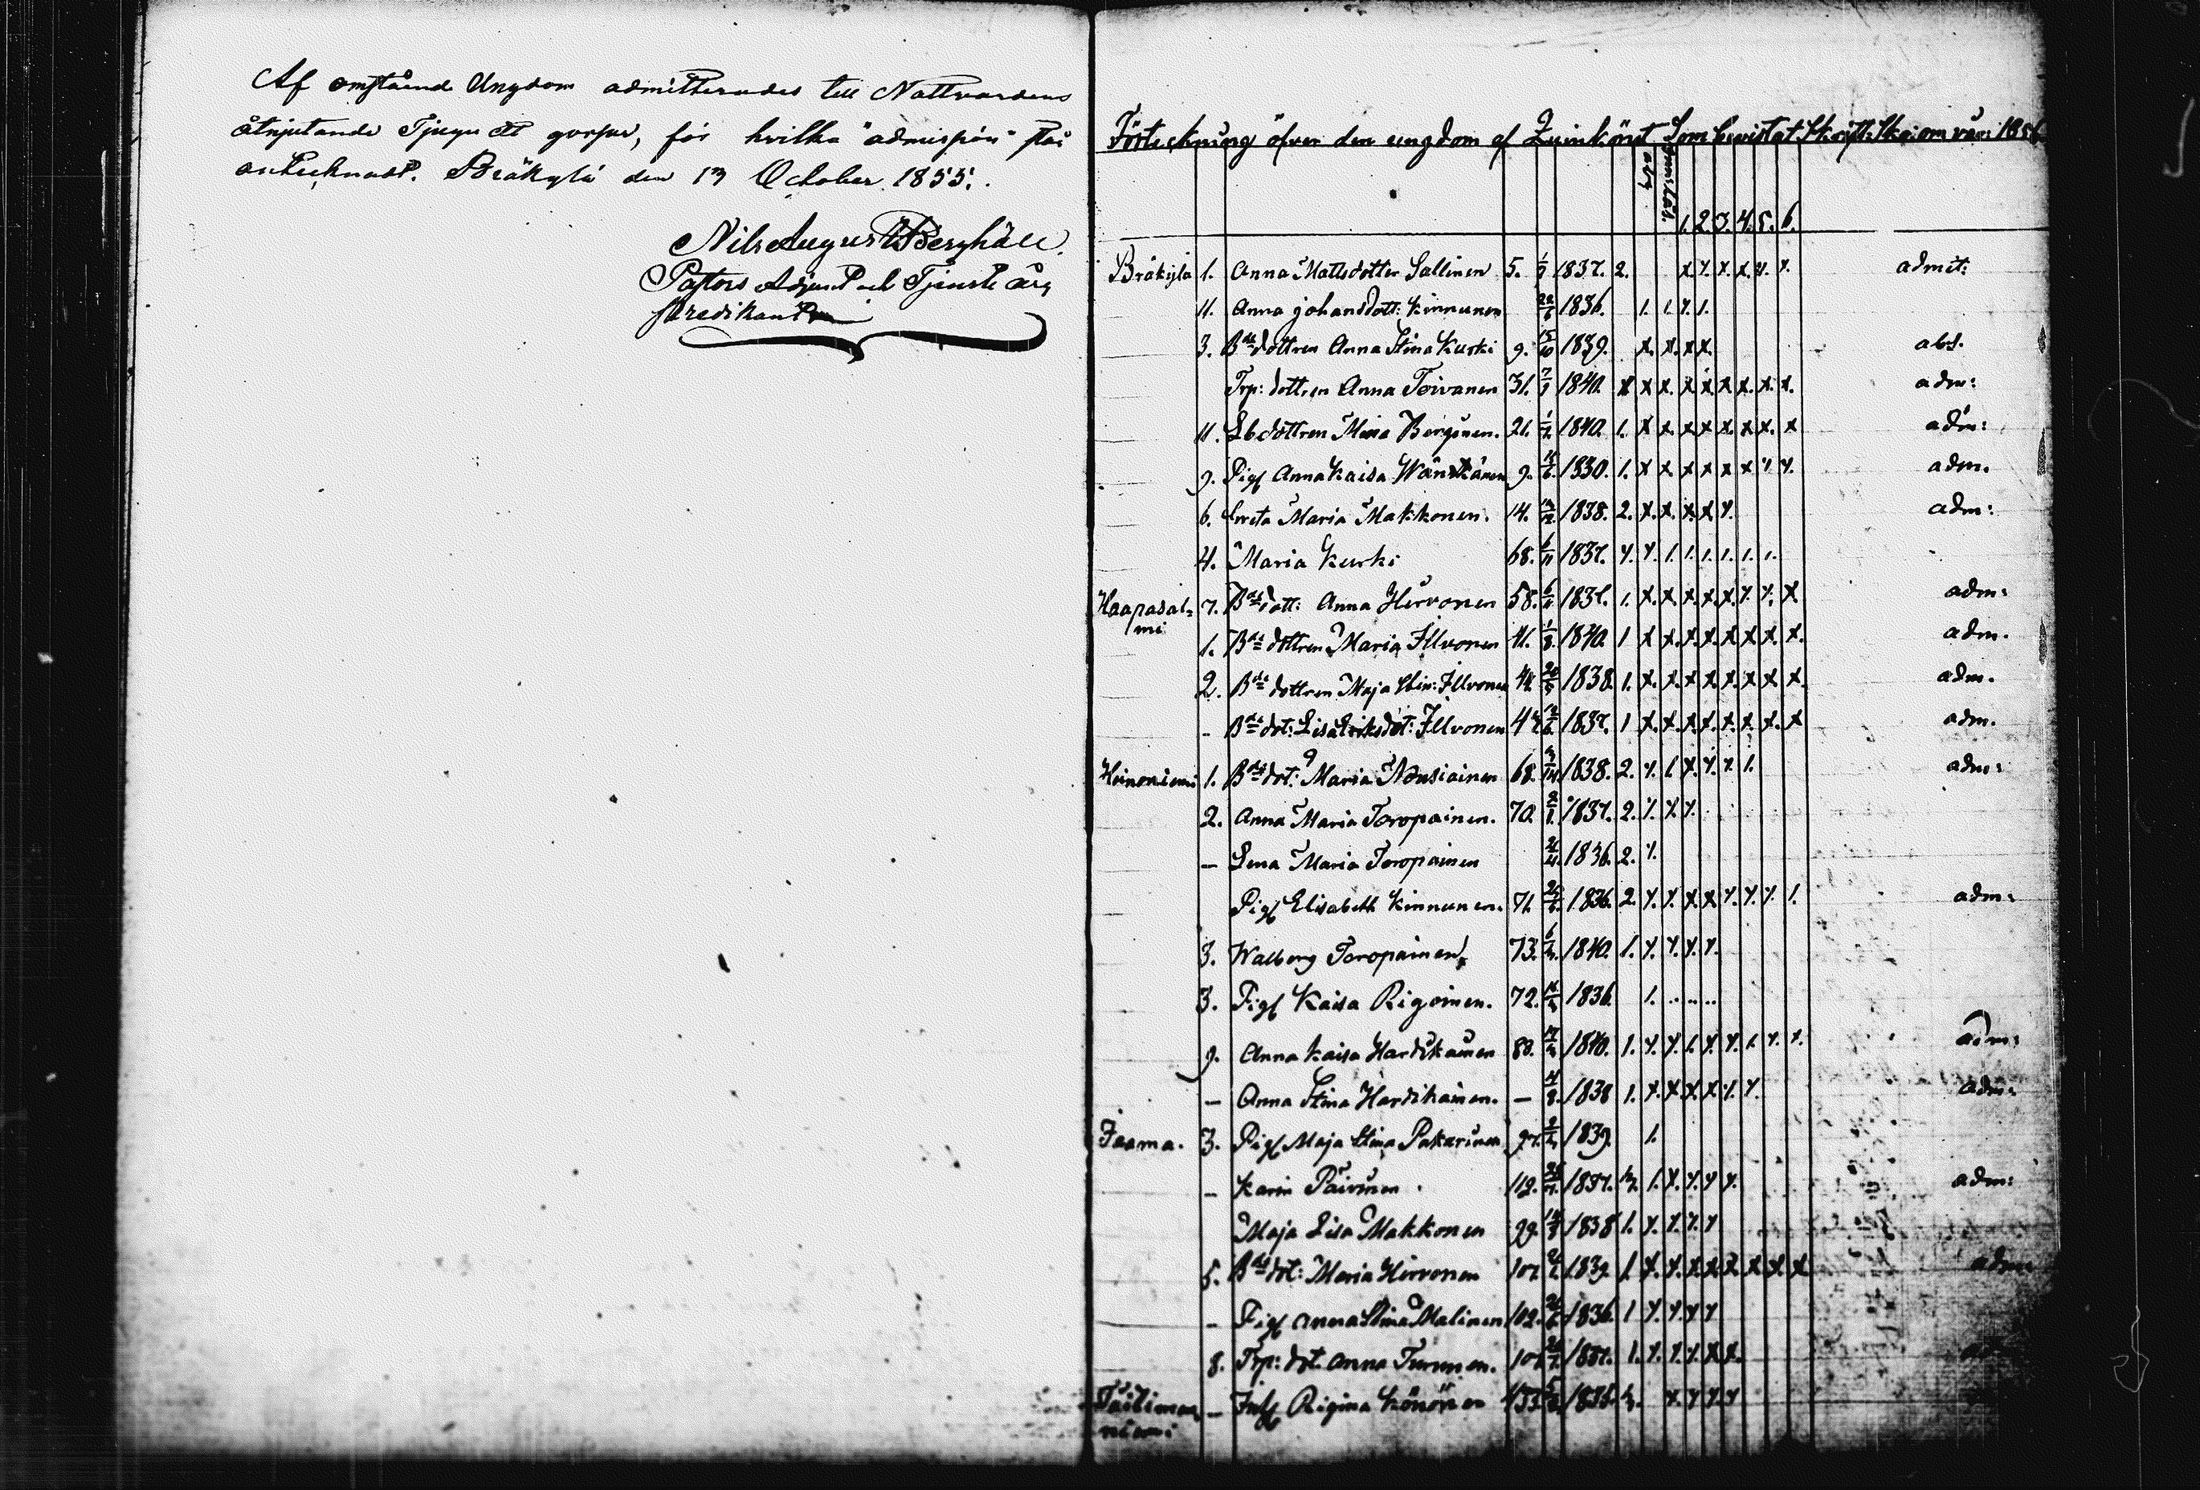 Af omstående Ungdom admitterades till Nattvardens
åtnjutande Tjugu ett gossar, för hvilka "admission" står
antecknadt. Bräkylä den 13 October 1855.
Nils August Berghäll
Pastors Adjunct och Tjenste görg
predikanten
Förteckning öfver den ungdom af Quinkönet Som bevistat Skrift: Skolan vår: 1856
1. 2. 3. 4. 5. 6.
Bräkylä 1. Anna Mattsdotter Sallinen 5. 1837. 2. x x. x. x. x. x. admit:
11. Anna Johansdott: Kinnunen 1836. 1. 1. x. 1.
3. Bdedottren Anna Stina Kurki 9. 15/10 1839. x. x. x x. abs.
Trp: dottren Anna Toivanen 31. 1840. x x x. x x. x x. x. x. adm:
11. Lbdottren Maria Bergönen. 21. 1840. 1. x x. x x x. x. x. x adm:
9. Pig Anna Kaisa Wänskänen 9. 1830. 1. x x. x x x x x x. adm.
6. Greta Maria Makkonen. 14. 1838. 2. x. x. x. x x. adm:
4. Maria Kurki 68. 6/11 1837. x. x. 1. 1. 1. 1. 1. 1.
Haapasal=
mi 7. Bdedott: Anna Hirvonen 58. 1837. 1. x. x. x. x. x. x x. x adm:
1. Bdedottren Maria Illvonen 41. 1/8. 1840. 1 x x. x. x. x x. x. x. adm.
2. Bdedottren Maja Stin: Illvonen 44. 1838. 1. x. x. x. x. x. x. x. x. adm.
– Bdedot: Lisa Eriksdot: Illvonen 47. 1837. 1 x. x. x. x. x. x. x. x adm.
Heinoniemi 1. Bdedot: Maria Adusiainen 68. 1838. 2. x. 1. x. x. x. 1. adm:
2. Anna Maria Toropainen. 70. 1837. 2. x. x. x.
– Lena Maria Toropainen 1836. 2. x.
Pig Elisabeth Kinnunen. 71. 1836. 2. x. x. x x. x. x. x. 1. adm:
3. Walborg Toropainen 73. 1840. 1. x. x. x. x.
3. Pig Kaisa Rigoinen. 72. 1836. 1. .. .. ..
9. Anna Kaisa Hardikainen 80. 1840. 1. x. x. 1. x. x. 1. x. x. adm:
– Anna Stina Hardikainen. – 1838 1. x. x. x. x x. x. adm:
Jaama. 3. Pig Maja Stina Pakarinen 97. 1839. 1.
– Karin Päivinen 112. 1837. 1. x. x. x x. adm:
Maja Lisa Makkonen 99. 1838 1. x. x. x. x
5. Bdedot: Maria Hirvonen 107. 1839. 1. x. x. x x x x x. x adm:
– Pig Anna Stina Malinen 102. 1836. 1 x. x. x x
8. Trp: dot. Anna Turunen. 107. 1837. 1. x. x. x. x x.
– Inh Regina Könönen 1835. x. x. x. x
niemi